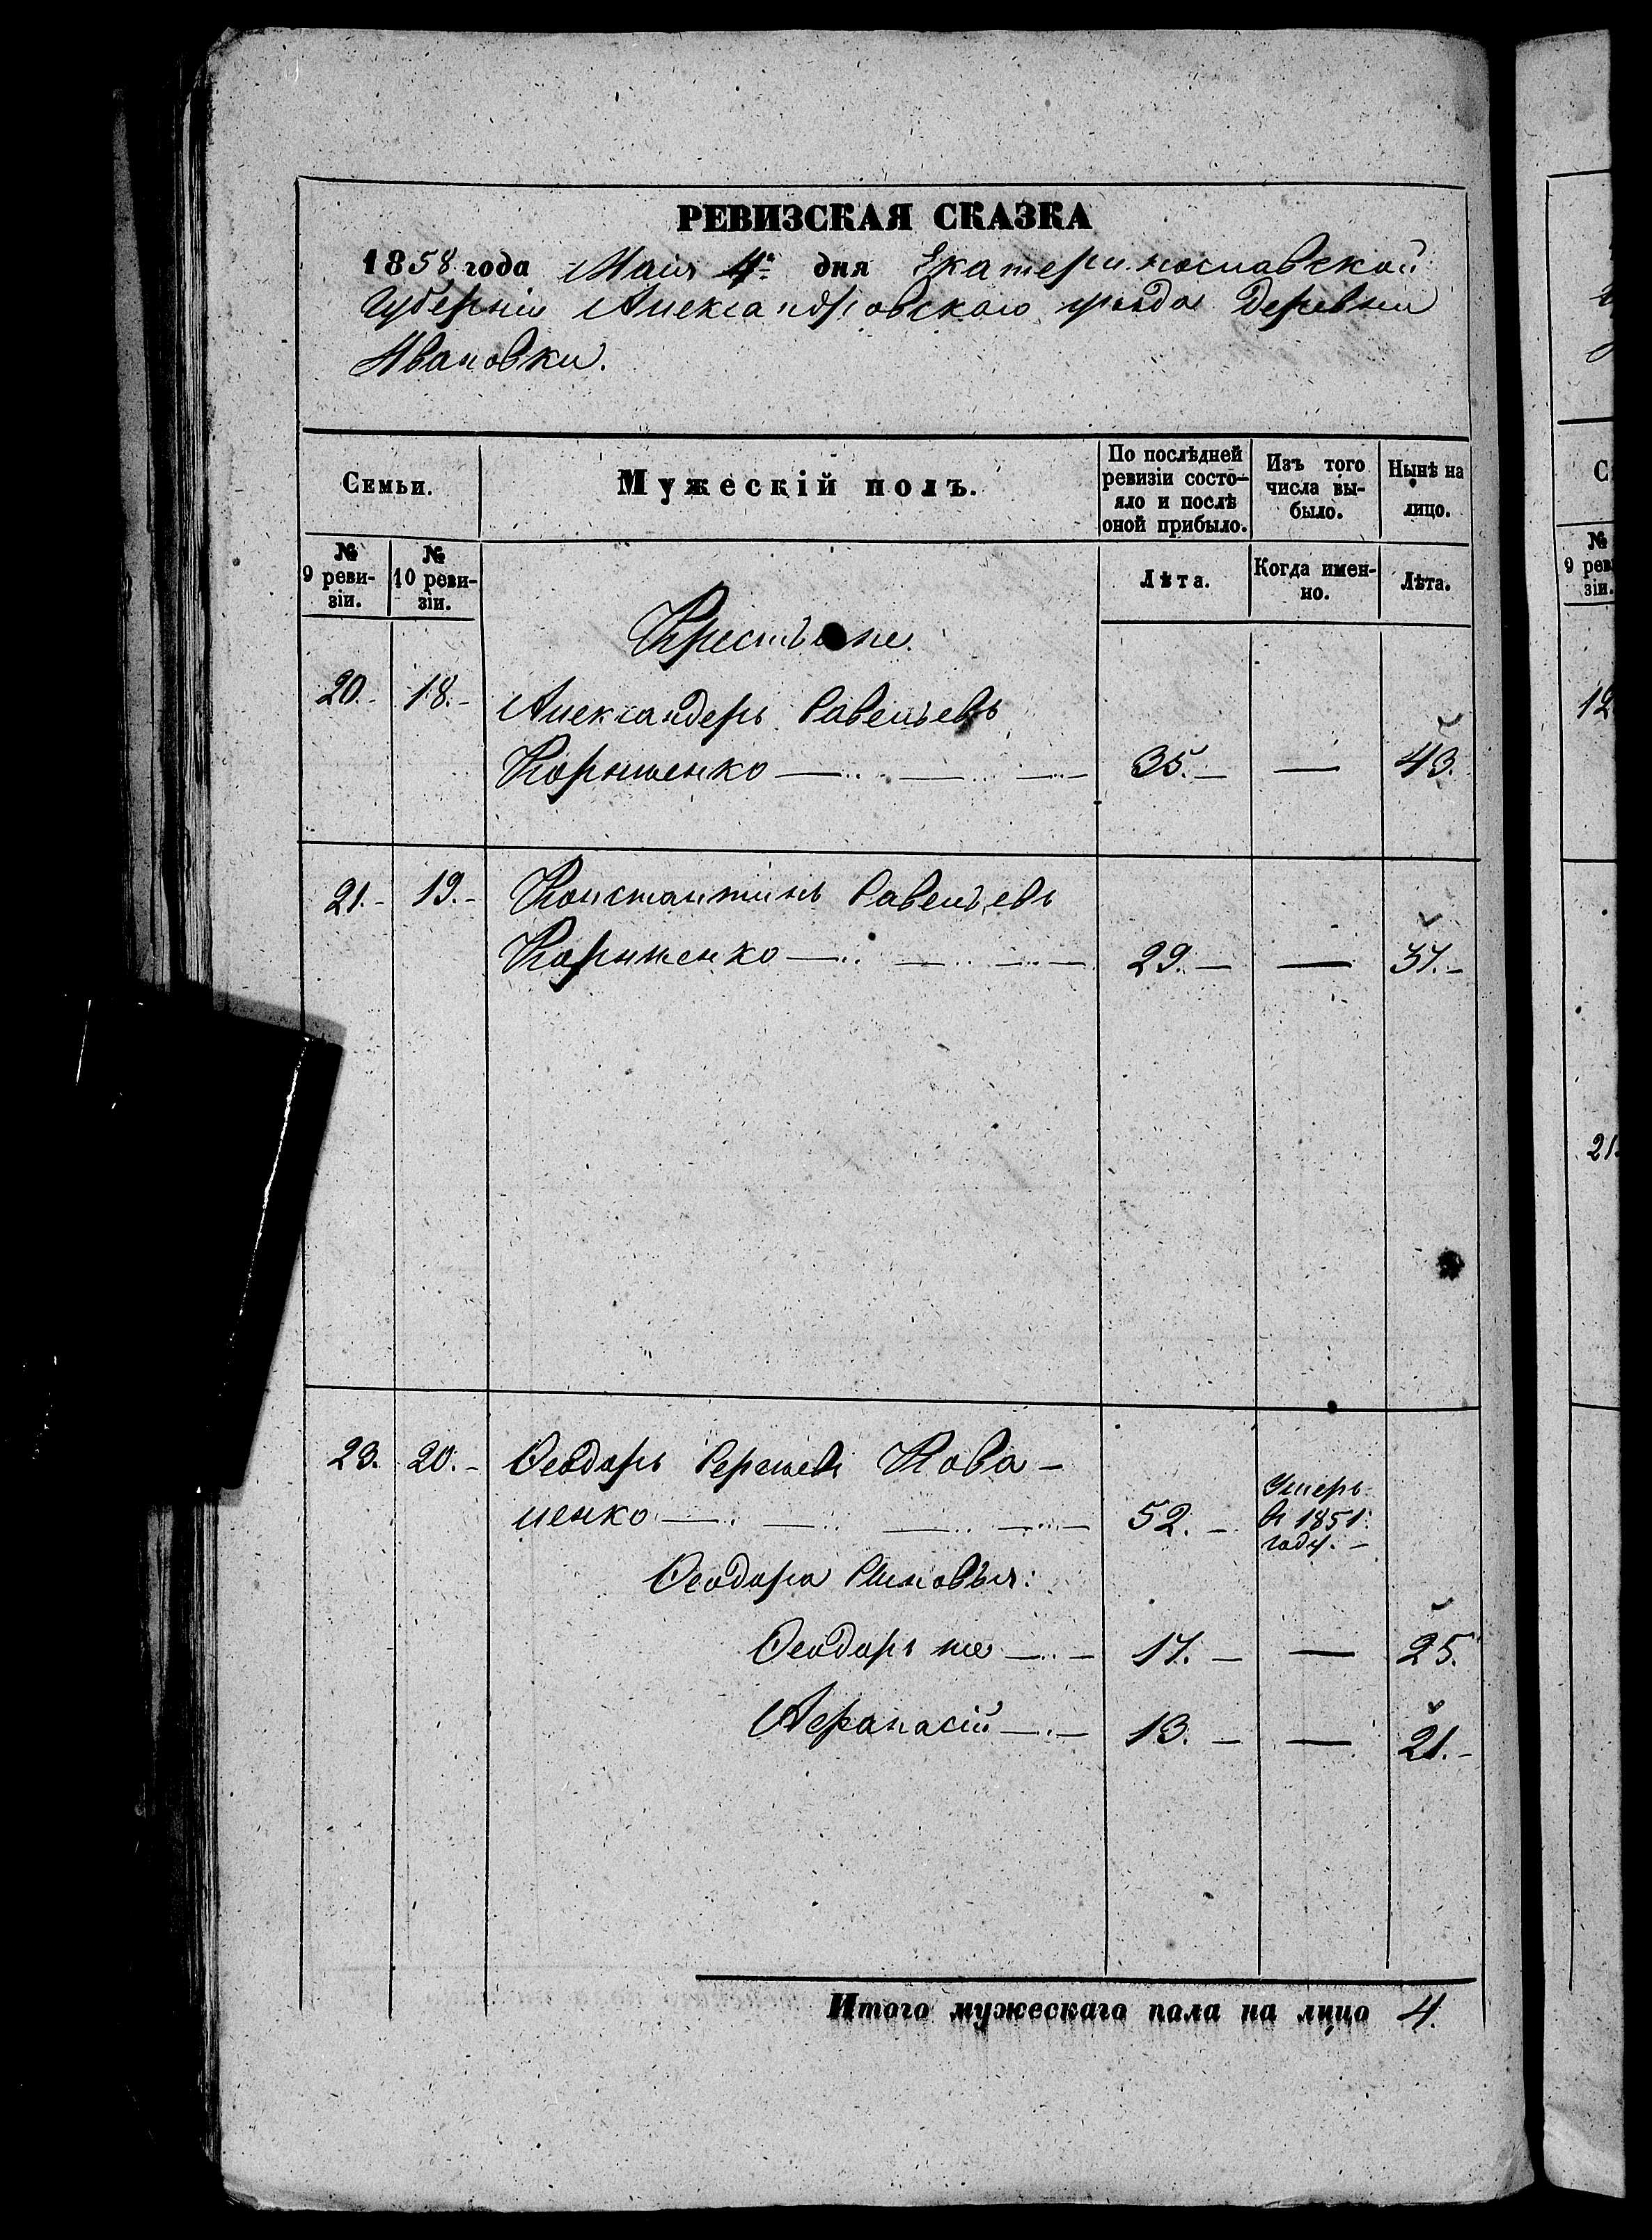 РЕВИЗСКАЯ СКАЗКА
1858 года Маія 4го дня Екатеринославской
Губерніи Александровскаго уѣзда Деревни
Ивановки.
Семьи.
Мужескій полъ.
По послѣдней
ревизіи состо-
яло и послѣ
оной прибыло.
Изъ того
числа вы-
было.
Нынѣ на
лицо.
№
9 реви-
зіи.
№
10 реви-
зіи.
Лѣта.
Когда имен-
но.
Лѣта.
Крестьяне.
20. 18. Александеръ Савельевъ
35. — 43.
21. 19. Константинъ Савельевъ
29. — 37.
23. 20. Ѳеодоръ Кова-
ленко 52. Умеръ
въ 1851
году.
Ѳеодора Сыновья:
Ѳеодоръ же 17. — 25.
Афанасій 13. — 21.
Итого мужескаго пола на лицо 4.
№
9 рев
зіи.